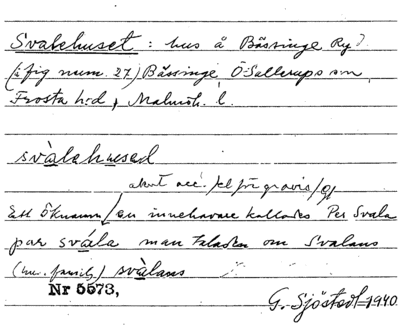 Svalehuset : hus å Bässinge Ry?
(å fig num. 27) Bässinge, Ö. Sallerups sn,
Frosta h:d, Malmöh. l.
svàlehused
akut acc. /el för gravis/
Ett öknamn / en innehavare kallades Per Svala
par svála man talade om Svalans
svàlans
Nr 5573,
G. Sjöstedt 1940